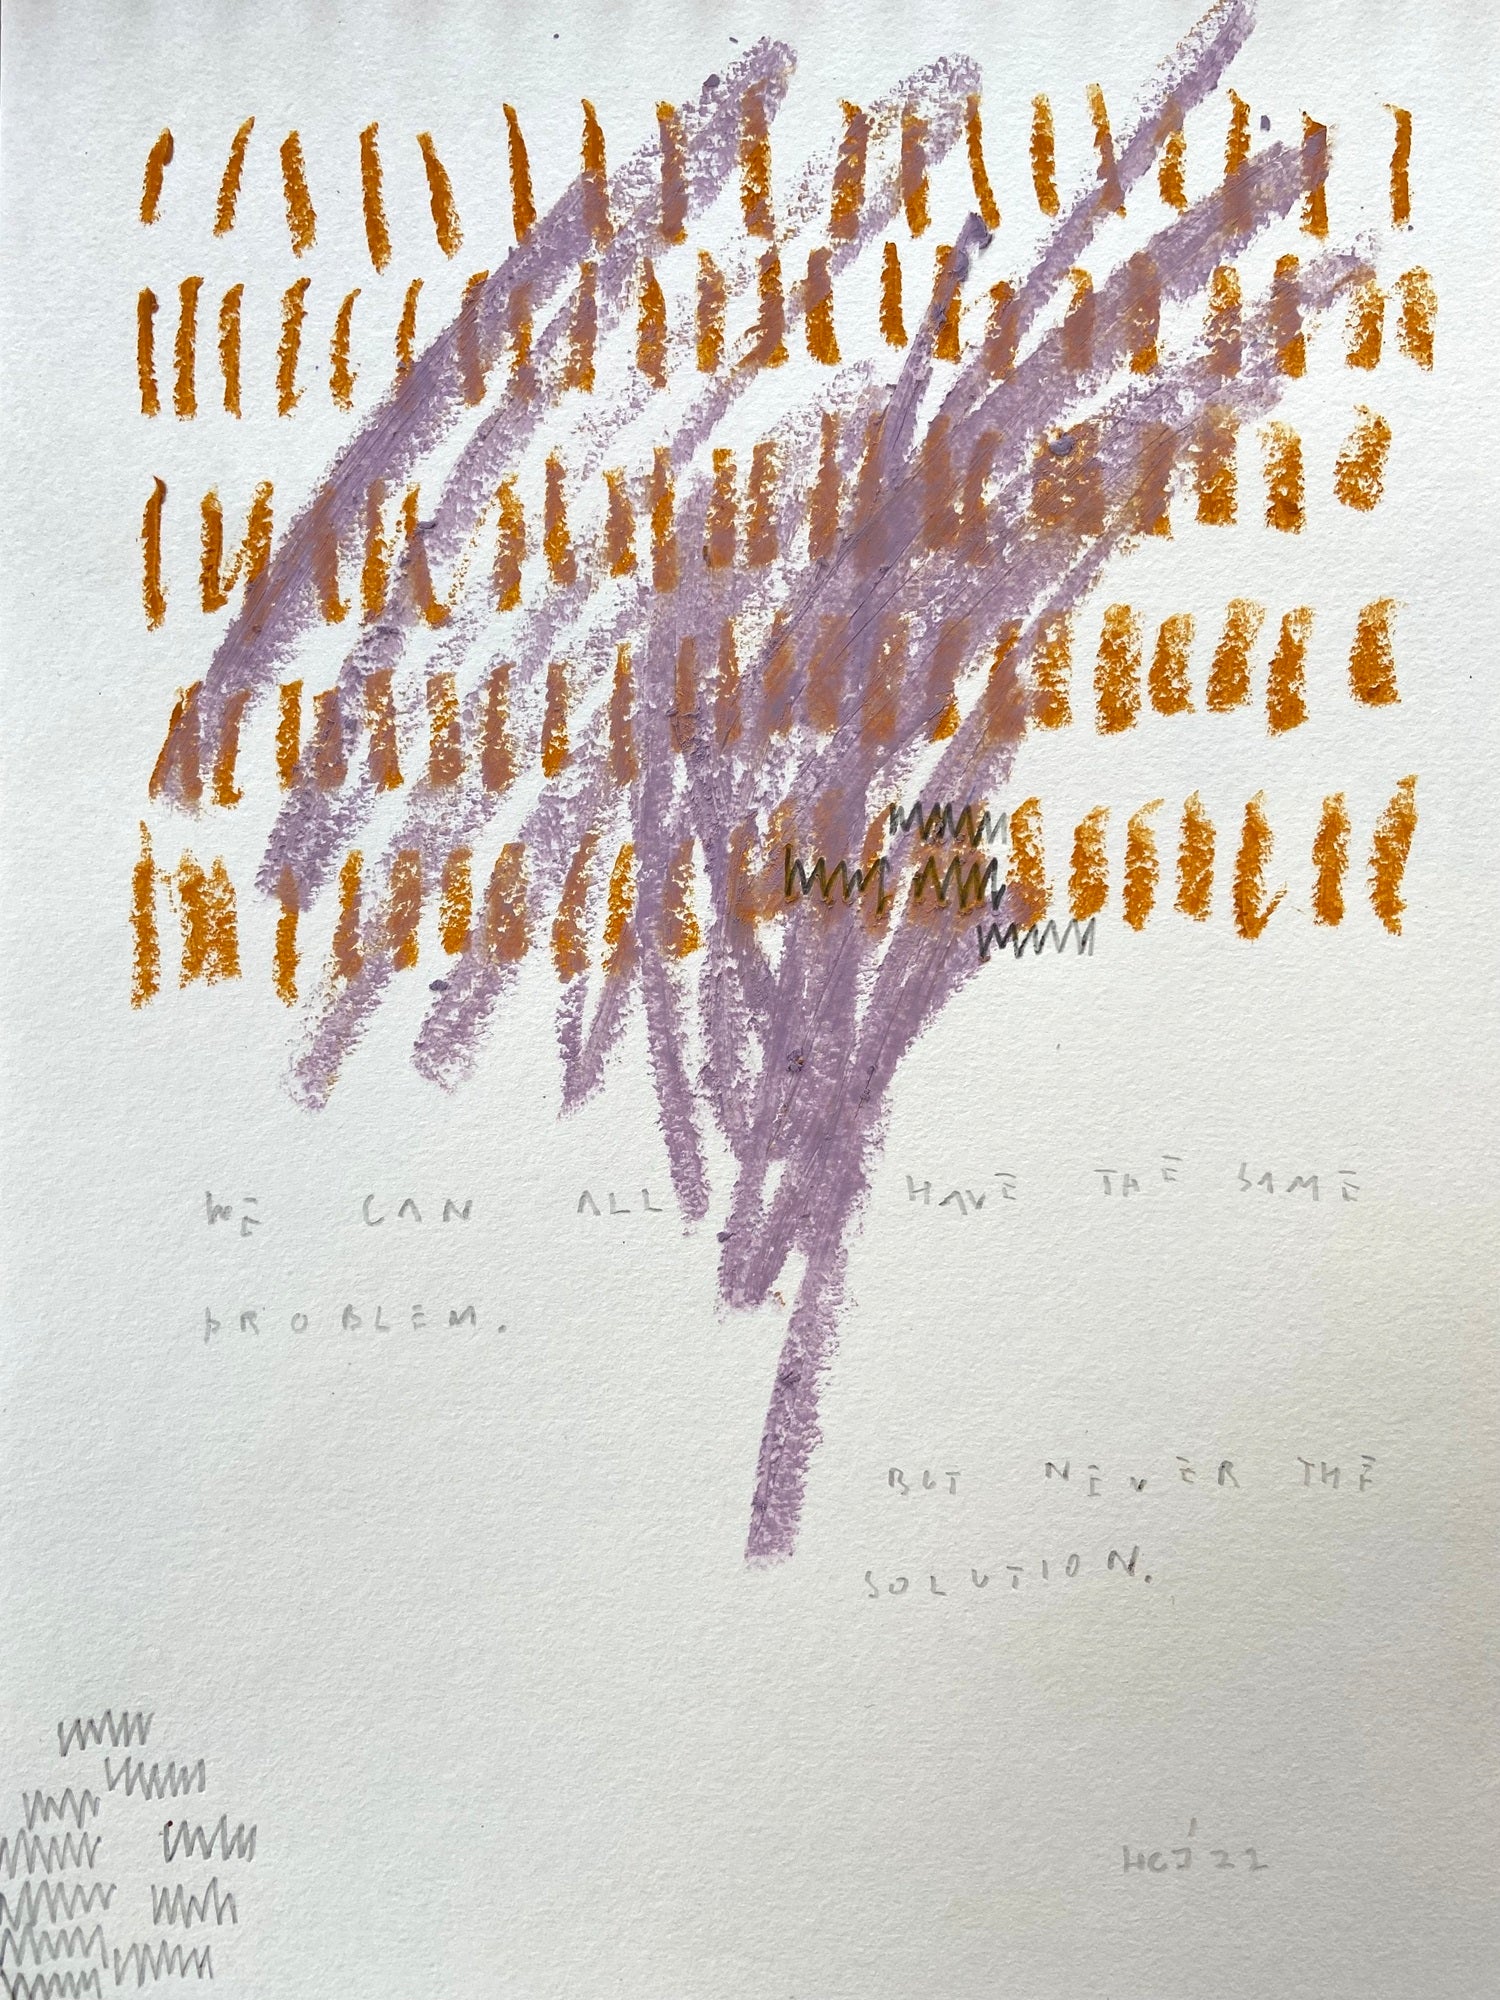 WE CAN ALL HAVE THE SAME
PROBLEM.
BUT NEVER THE
SOLUTION.
HCJ'22